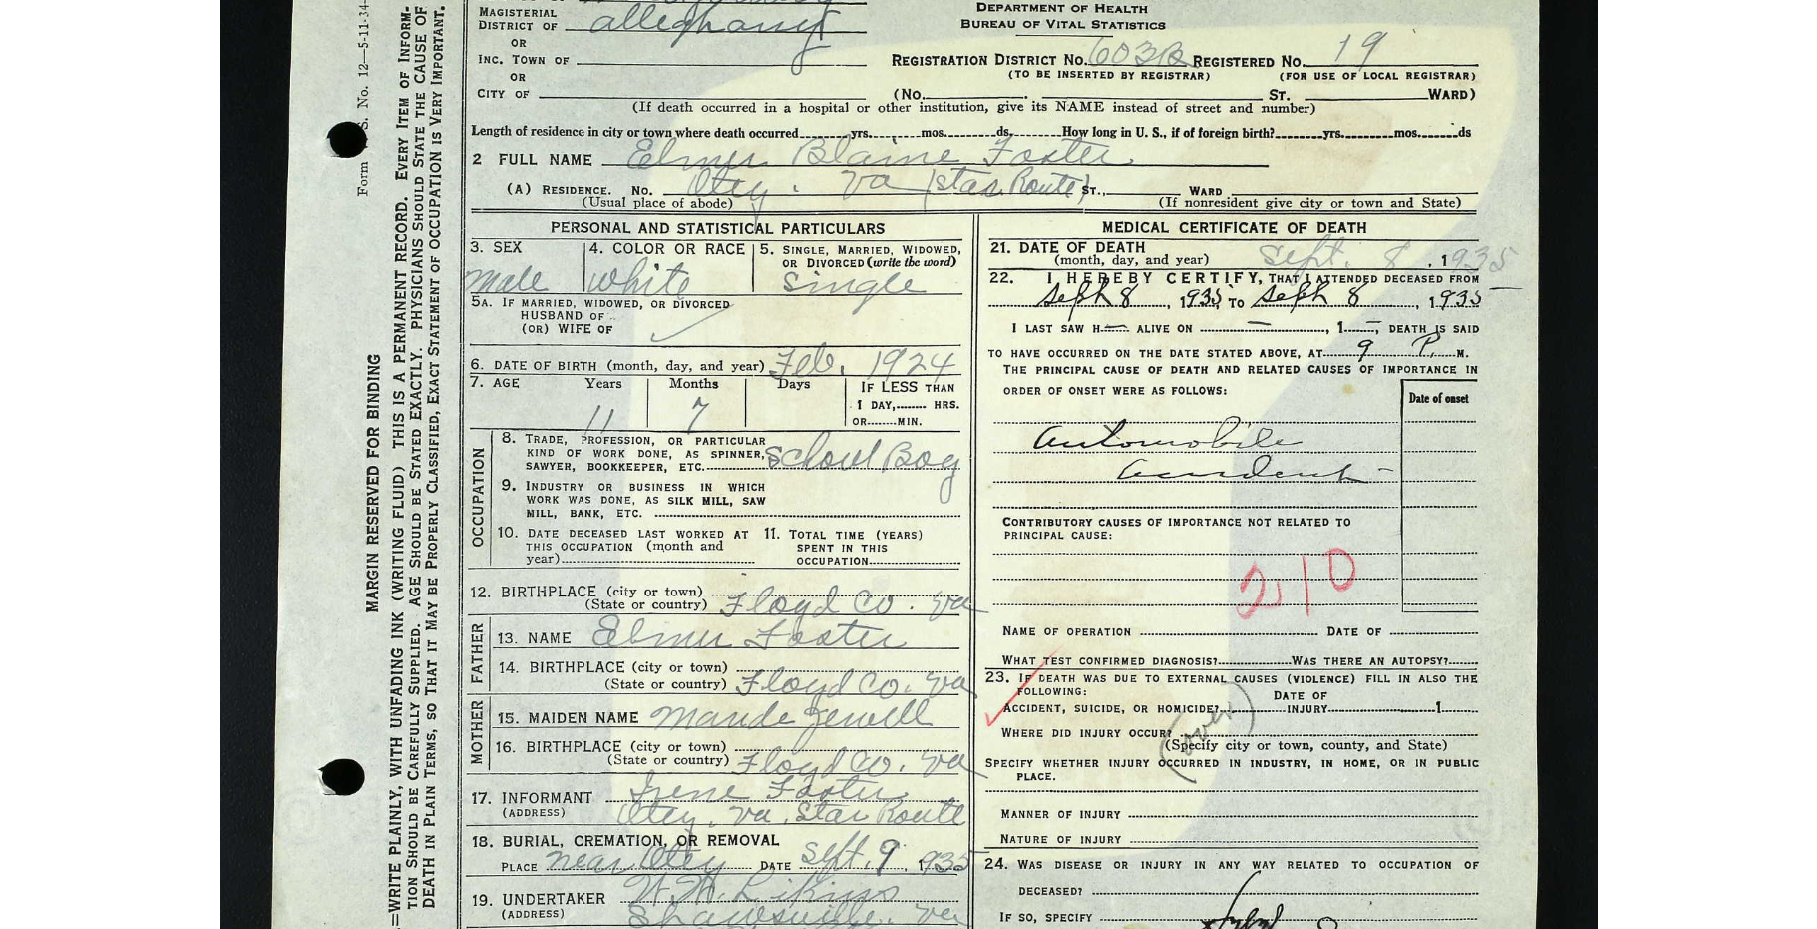 DEPARTMENT OF HEALTH
BUREAU OF VITAL STATISTICS
MAGISTERIAL
DISTRICT OF Alleghany
OR
INC. TOWN OF
REGISTRATION DISTRICT No. 603B REGISTERED No. 19
(TO BE INSERTED BY REGISTRAR) (FOR USE OF LOCAL REGISTRAR)
OR
CITY OF (No. ST. WARD)
(If death occurred in a hospital or other institution, give its NAME instead of street and number)
Length of residence in city or town where death occurred yrs. mos. ds. How long in U. S., if of foreign birth? yrs. mos. ds
2 FULL NAME Elmer Blaine Foster
(A) RESIDENCE. No. Otey, Va (Star Route) ST., WARD
(Usual place of abode) (If nonresident give city or town and State)
PERSONAL AND STATISTICAL PARTICULARS
3. SEX Male
4. COLOR OR RACE White
5. SINGLE, MARRIED, WIDOWED,
OR DIVORCED (write the word) Single
5A. IF MARRIED, WIDOWED, OR DIVORCED
HUSBAND OF
(OR) WIFE OF
6. DATE OF BIRTH (month, day, and year) Feb. 1924
7. AGE Years Months Days IF LESS THAN
1 DAY, HRS.
OR MIN.
11 7
OCCUPATION
8. TRADE, PROFESSION, OR PARTICULAR
KIND OF WORK DONE, AS SPINNER,
SAWYER, BOOKKEEPER, ETC. School Boy
9. INDUSTRY OR BUSINESS IN WHICH
WORK WAS DONE, AS SILK MILL, SAW
MILL, BANK, ETC.
10. DATE DECEASED LAST WORKED AT
THIS OCCUPATION (month and
year)
11. TOTAL TIME (YEARS)
SPENT IN THIS
OCCUPATION
12. BIRTHPLACE (city or town)
(State or country) Floyd Co. Va
FATHER
13. NAME Elmer Foster
14. BIRTHPLACE (city or town)
(State or country) Floyd Co. Va
MOTHER
15. MAIDEN NAME Maude Jewell
16. BIRTHPLACE (city or town)
(State or country) Floyd Co. Va
17. INFORMANT Irene Foster
(ADDRESS) Otey, Va, Star Route
18. BURIAL, CREMATION, OR REMOVAL
PLACE near Otey DATE Sept. 9, 1935
19. UNDERTAKER W.M.
(ADDRESS) Shawsville, Va
MEDICAL CERTIFICATE OF DEATH
21. DATE OF DEATH
(month, day, and year) Sept. 8, 1935
22. I HEREBY CERTIFY, THAT I ATTENDED DECEASED FROM
Sept 8, 1935 TO Sept 8, 1935
I LAST SAW H— ALIVE ON —, 1—, DEATH IS SAID
TO HAVE OCCURRED ON THE DATE STATED ABOVE, AT 9 P. M.
THE PRINCIPAL CAUSE OF DEATH AND RELATED CAUSES OF IMPORTANCE IN
ORDER OF ONSET WERE AS FOLLOWS:
Date of onset
Automobile
accident —
CONTRIBUTORY CAUSES OF IMPORTANCE NOT RELATED TO
PRINCIPAL CAUSE:
210
NAME OF OPERATION DATE OF
WHAT TEST CONFIRMED DIAGNOSIS? WAS THERE AN AUTOPSY?
23. IF DEATH WAS DUE TO EXTERNAL CAUSES (VIOLENCE) FILL IN ALSO THE
FOLLOWING:
ACCIDENT, SUICIDE, OR HOMICIDE? DATE OF INJURY 1
(over)
WHERE DID INJURY OCCUR?
(Specify city or town, county, and State)
SPECIFY WHETHER INJURY OCCURRED IN INDUSTRY, IN HOME, OR IN PUBLIC
PLACE.
MANNER OF INJURY
NATURE OF INJURY
24. WAS DISEASE OR INJURY IN ANY WAY RELATED TO OCCUPATION OF
DECEASED?
IF SO, SPECIFY
MARGIN RESERVED FOR BINDING
Form S. No. 12—5-11-34
=WRITE PLAINLY, WITH UNFADING INK (WRITING FLUID) THIS IS A PERMANENT RECORD. EVERY ITEM OF INFORM-
TION SHOULD BE CAREFULLY SUPPLIED. AGE SHOULD BE STATED EXACTLY. PHYSICIANS SHOULD STATE THE CAUSE OF
DEATH IN PLAIN TERMS, SO THAT IT MAY BE PROPERLY CLASSIFIED, EXACT STATEMENT OF OCCUPATION IS VERY IMPORTANT.